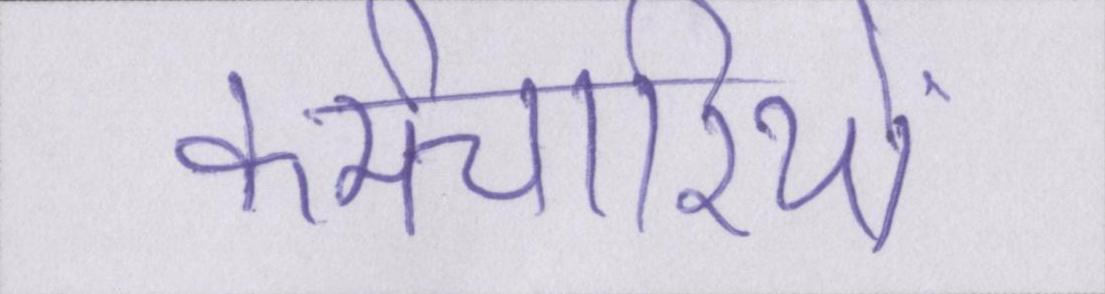 कर्मचारियों